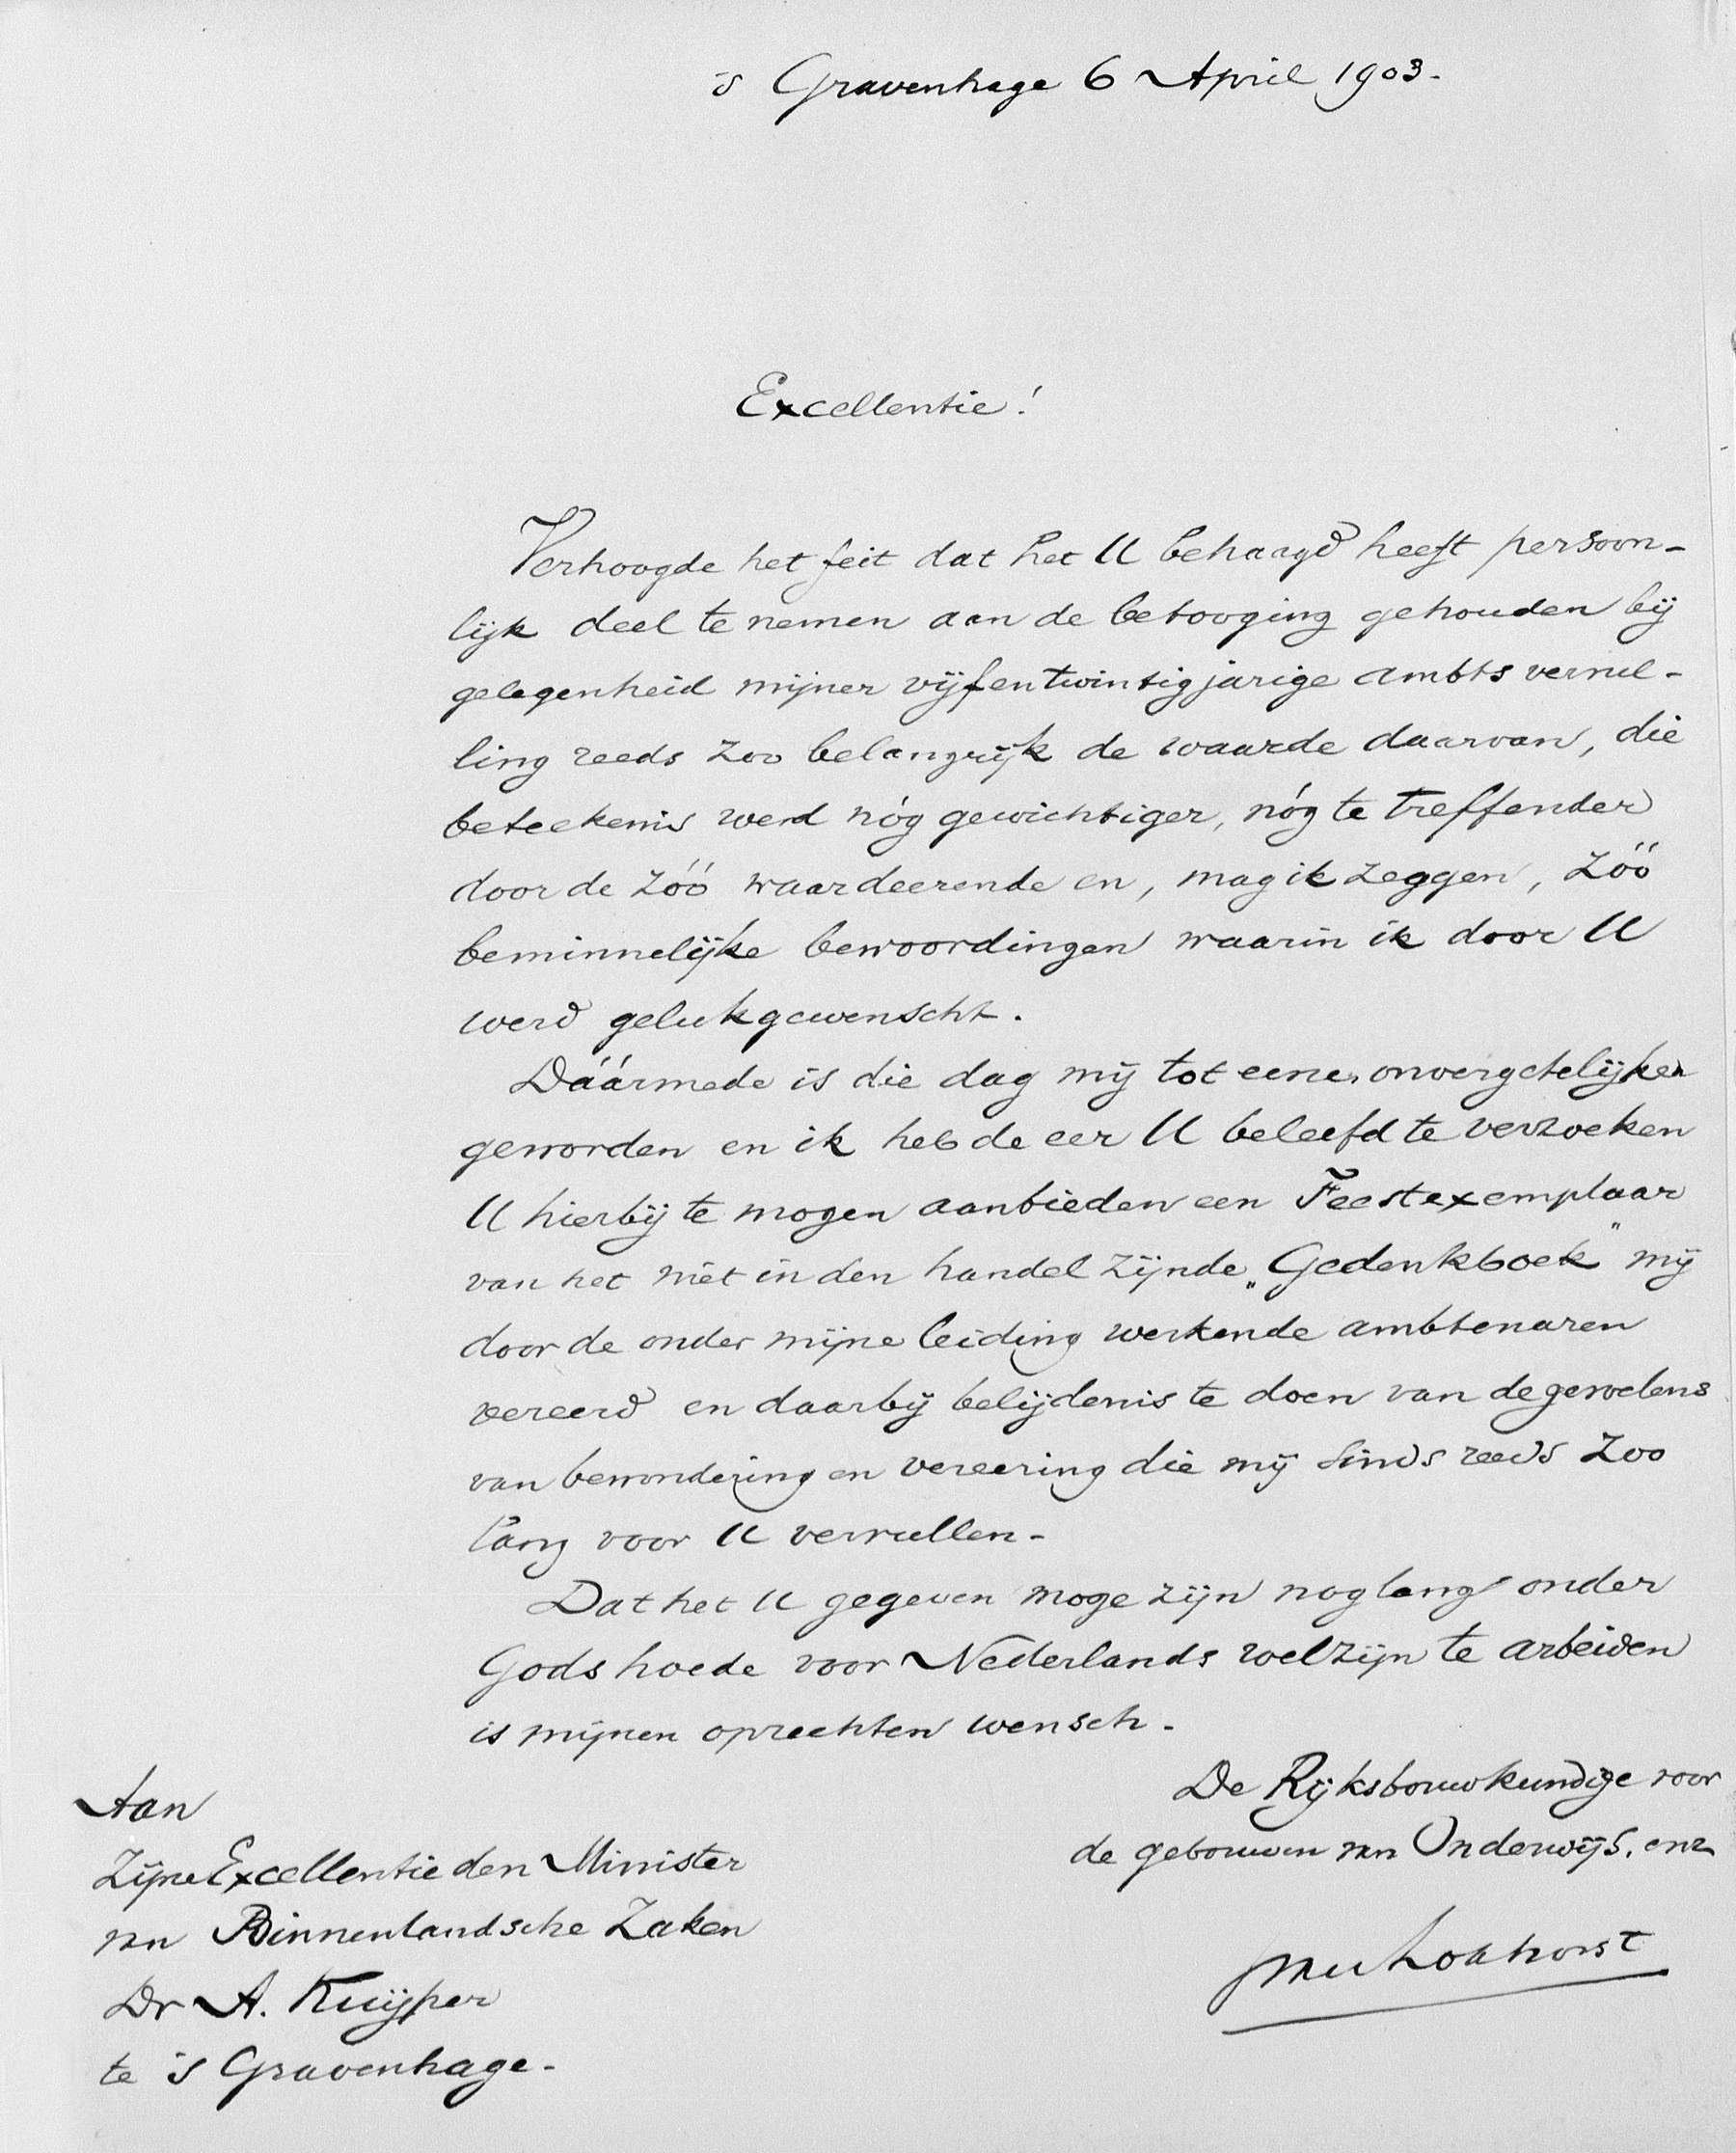 's Gravenhage 6 April 1903.
Excellentie!
Verhoogde het feit dat het U behaagd heeft persoon-
lijk deel te nemen aan de betooging gehouden bij
gelegenheid mijner vijfentwintigjarige ambtsvervul-
ling reeds zoo belangrijk de waarde daarvan, die
beteekenis werd nóg gewichtiger, nóg te treffender
door de zóó waardeerende en, mag ik zeggen, zóó
beminnelijke bewoordingen waarin ik door U
werd gelukgewenscht.
Dáármede is die dag mij tot eenen onvergetelijken
geworden en ik heb de eer U beleefd te verzoeken
U hierbij te mogen aanbieden een Feestexemplaar
van het niet in den handel zijnde „Gedenkboek" mij
door de onder mijne leiding werkende ambtenaren
vereerd en daarbij belijdenis te doen van de gevoelens
van bewondering en vereering die mij sinds reeds zoo
lang voor U vervullen.
Dat het U gegeven moge zijn nog lang onder
Gods hoede voor Nederlands welzijn te arbeiden
is mijnen oprechten wensch.
De Rijksbouwkundige voor
de gebouwen van Onderwijs, enz
JvanLokhorst
Aan
Zijne Excellentie den Minister
van Binnenlandsche Zaken
Dr A. Kuijper
te 's Gravenhage.